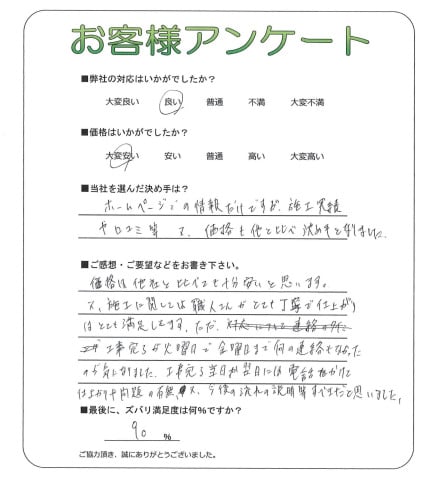 お客様アンケート
■弊社の対応はいかがでしたか？
大変良い 良い 普通 不満 大変不満
■価格はいかがでしたか？
大変安い 安い 普通 高い 大変高い
■当社を選んだ決め手は？
ホームページでの情報だけですが、施工実績
や口コミ等 で、価格も他と比べ決め手となりました。
■ご感想・ご要望などをお書き下さい。
価格は他社と比べても十分安いと思います。
又、施工に関しては職人さんがとても丁寧で仕上がり
はとても満足してます。ただ、
工事完了が火曜日で金曜日まで何の連絡もなかった
のが気になりました。工事完了当日か翌日には電話をかけて
仕上がりや問題の有無、又、今後の流れの説明等すべきだと思いました。
■最後に、ズバリ満足度は何%ですか？
90 %
ご協力頂き、誠にありがとうございました。